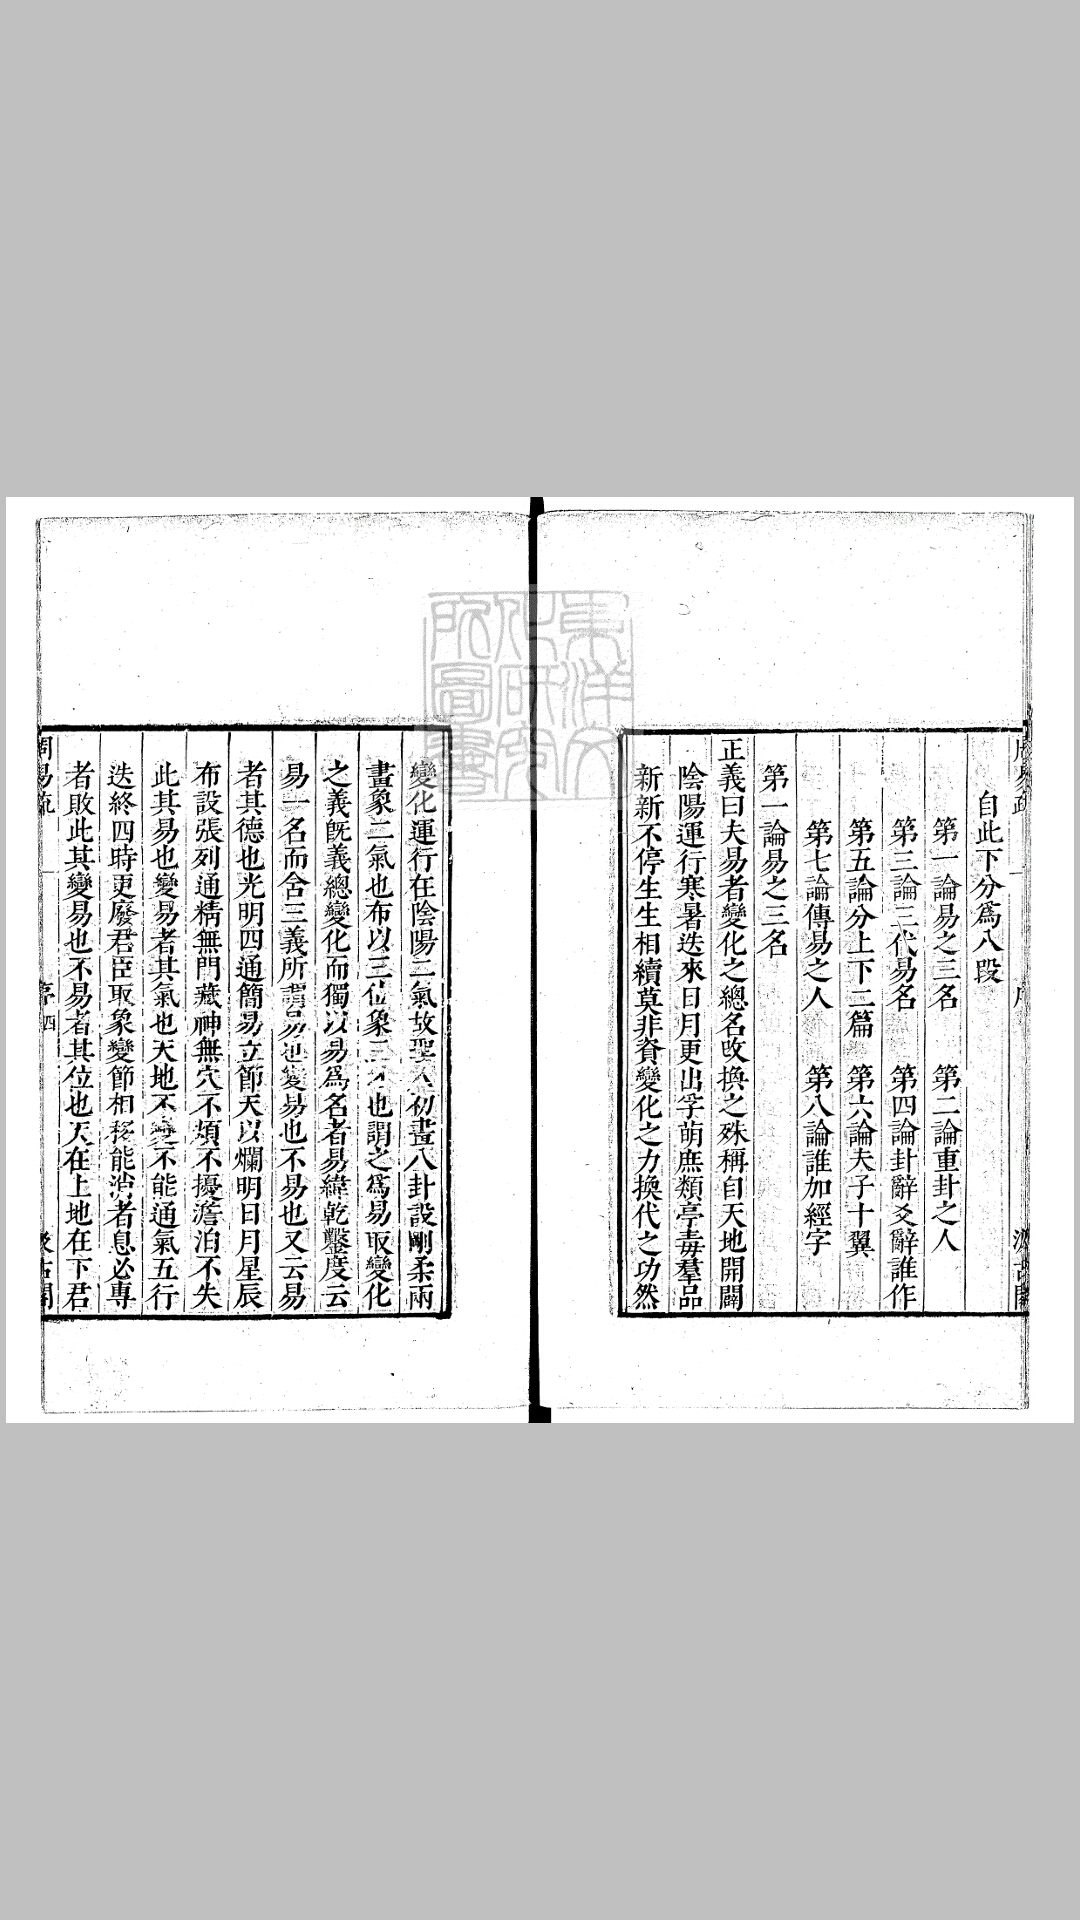 自此下分爲八段
第一論易之三名　第二論重卦之人
第三論三代易名　第四論卦辭爻辭誰作
第五論分上下二篇　第六論夫子十翼
第七論傳易之人　第八論誰加經字
第一論易之三名
正義曰夫易者變化之總名改換之殊稱自天地開闢
陰陽運行寒暑迭來日月更出孚萌庶類亭毒羣品
新新不停生生相續莫非資變化之力換代之功然
變化運行在陰陽二氣故聖人初畫八卦設剛柔兩
畫象二氣也布以三位象三才也謂之爲易取變化
之義旣義總變化而獨以易爲名者易緯乾鑿度云
易一名而含三義所謂易也變易也不易也又云易
者其德也光明四通簡易立節天以爛明日月星辰
布設張列通精無門藏神無穴不煩不擾澹泊不失
此其易也變易者其氣也天地不變不能通氣五行
迭終四時更廢君臣取象變節相移能消者息必專
者敗此其變易也不易者其位也天在上地在下君
周易疏　序　四
東洋文化研究所圖書